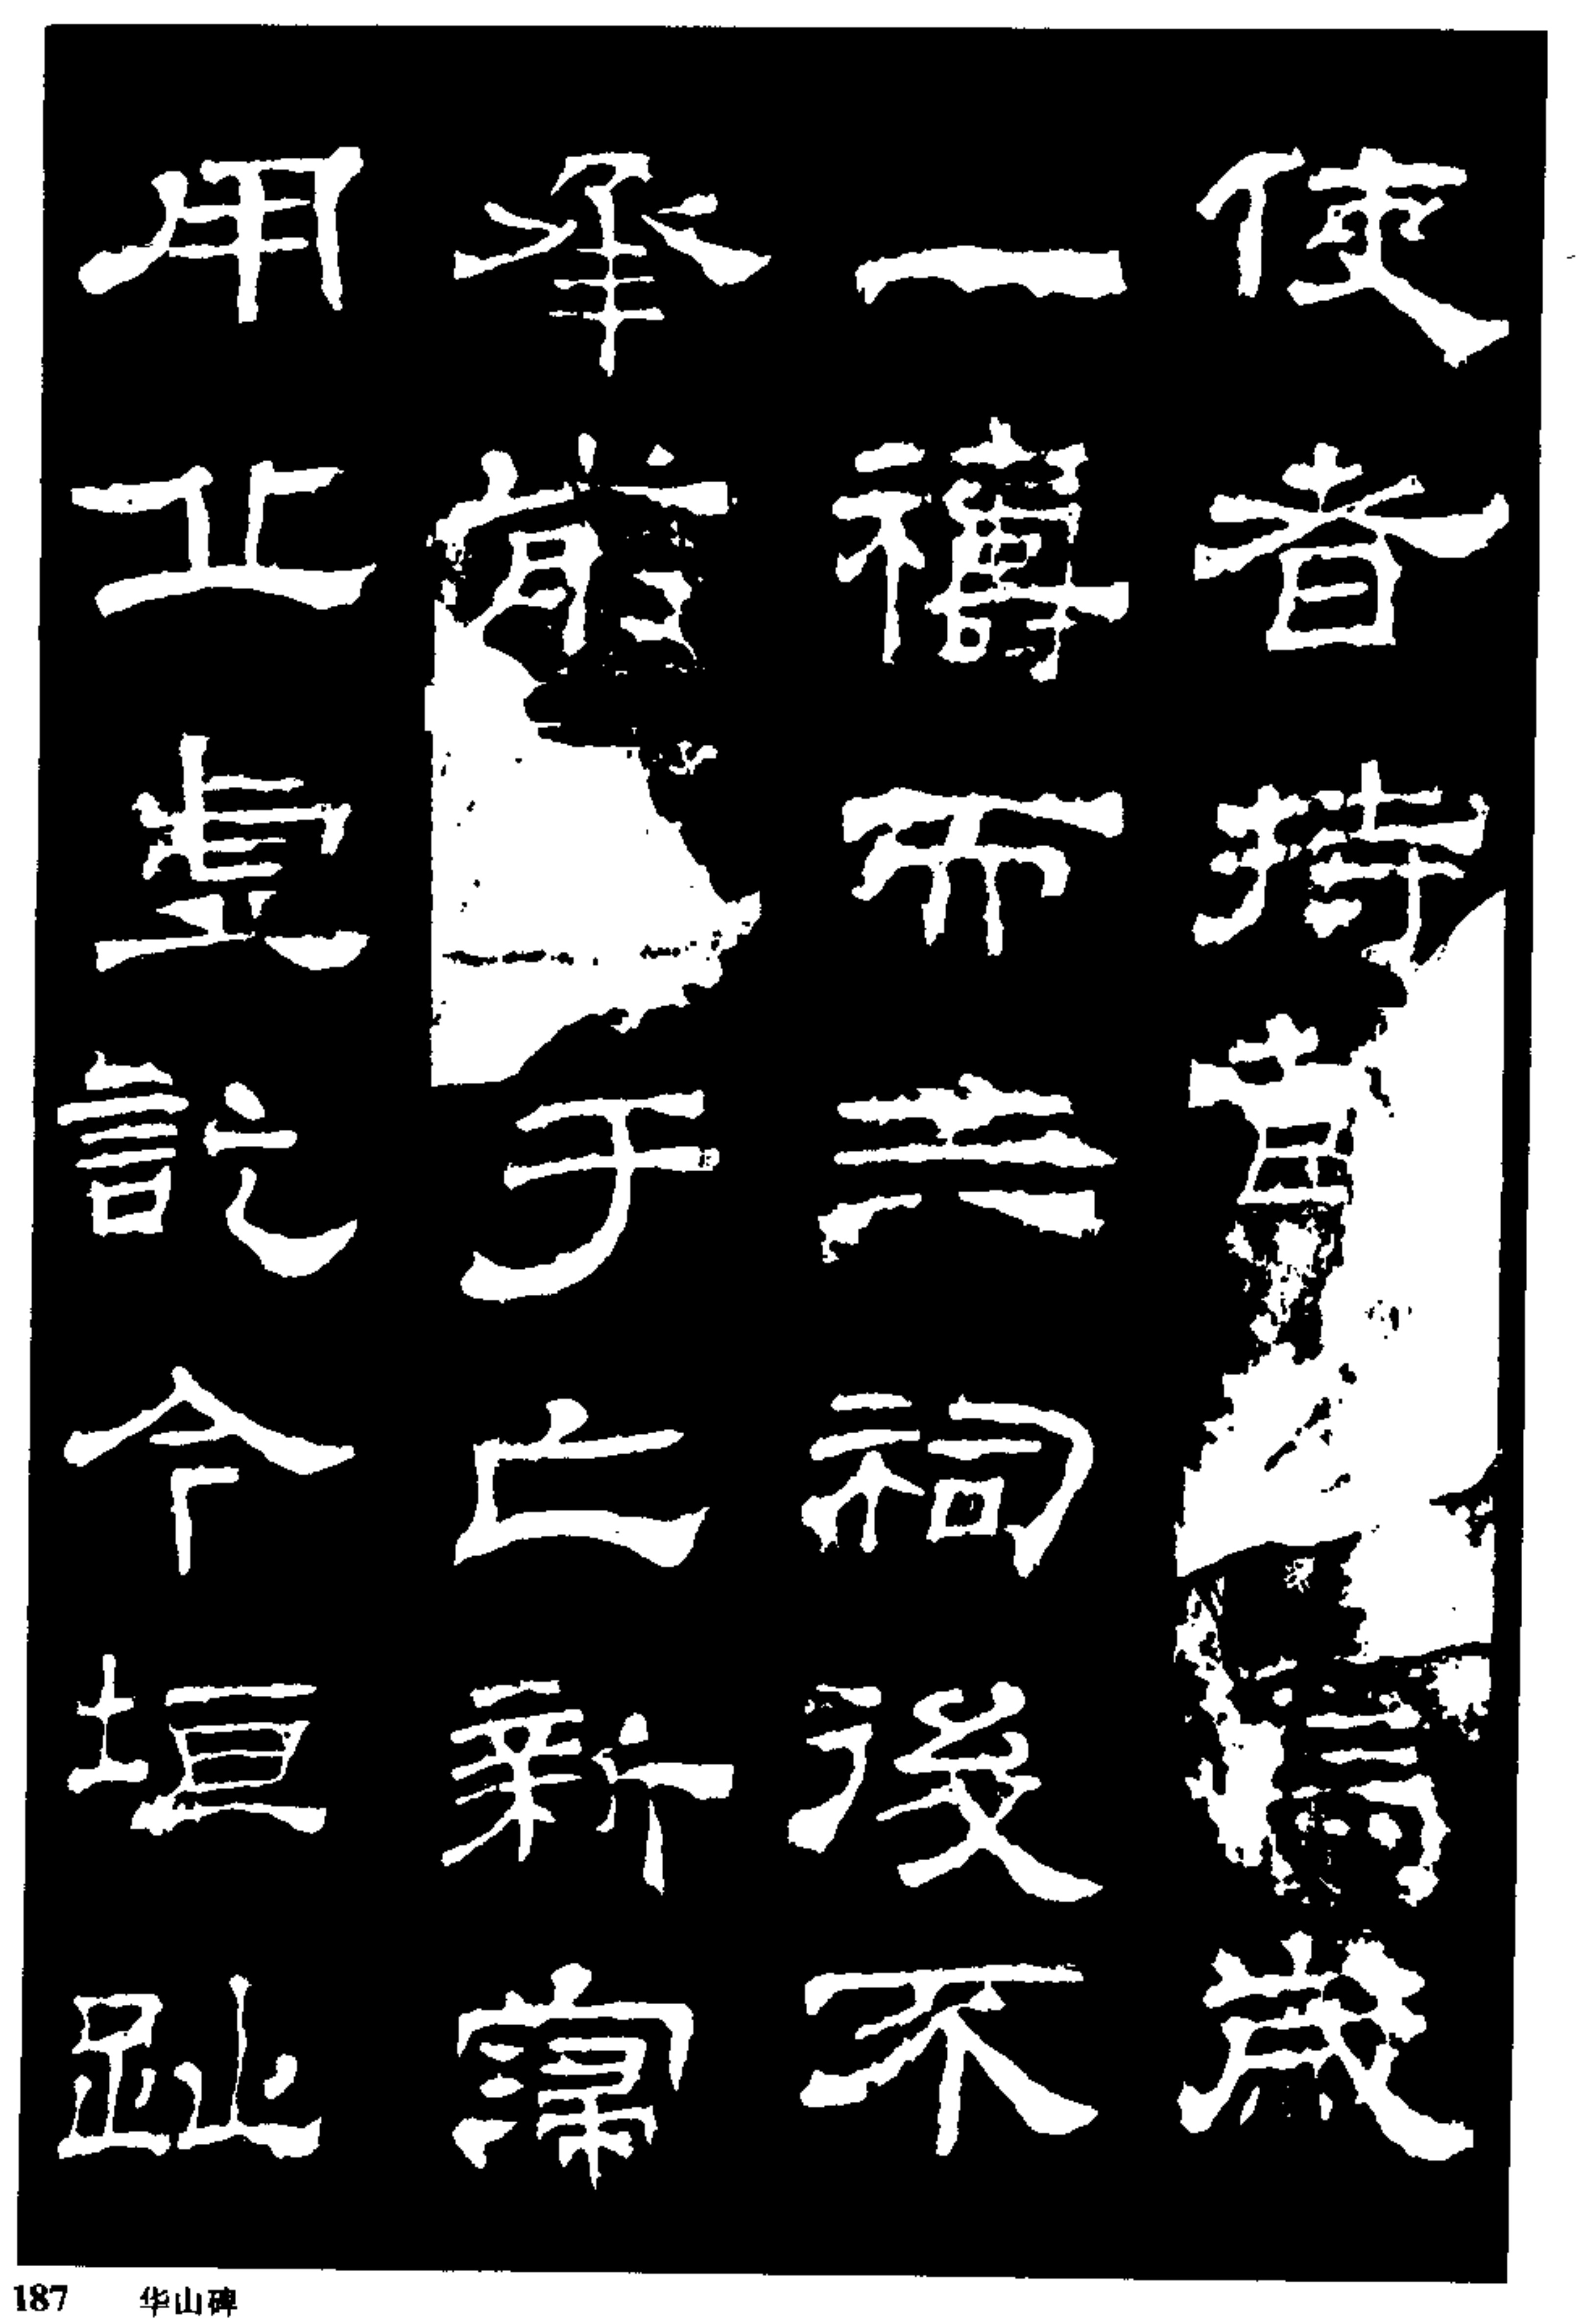 使者持節焉歲
一禱而三祠後不
承前于亡新寖
用丘虛訖今垣趾
187 华山碑